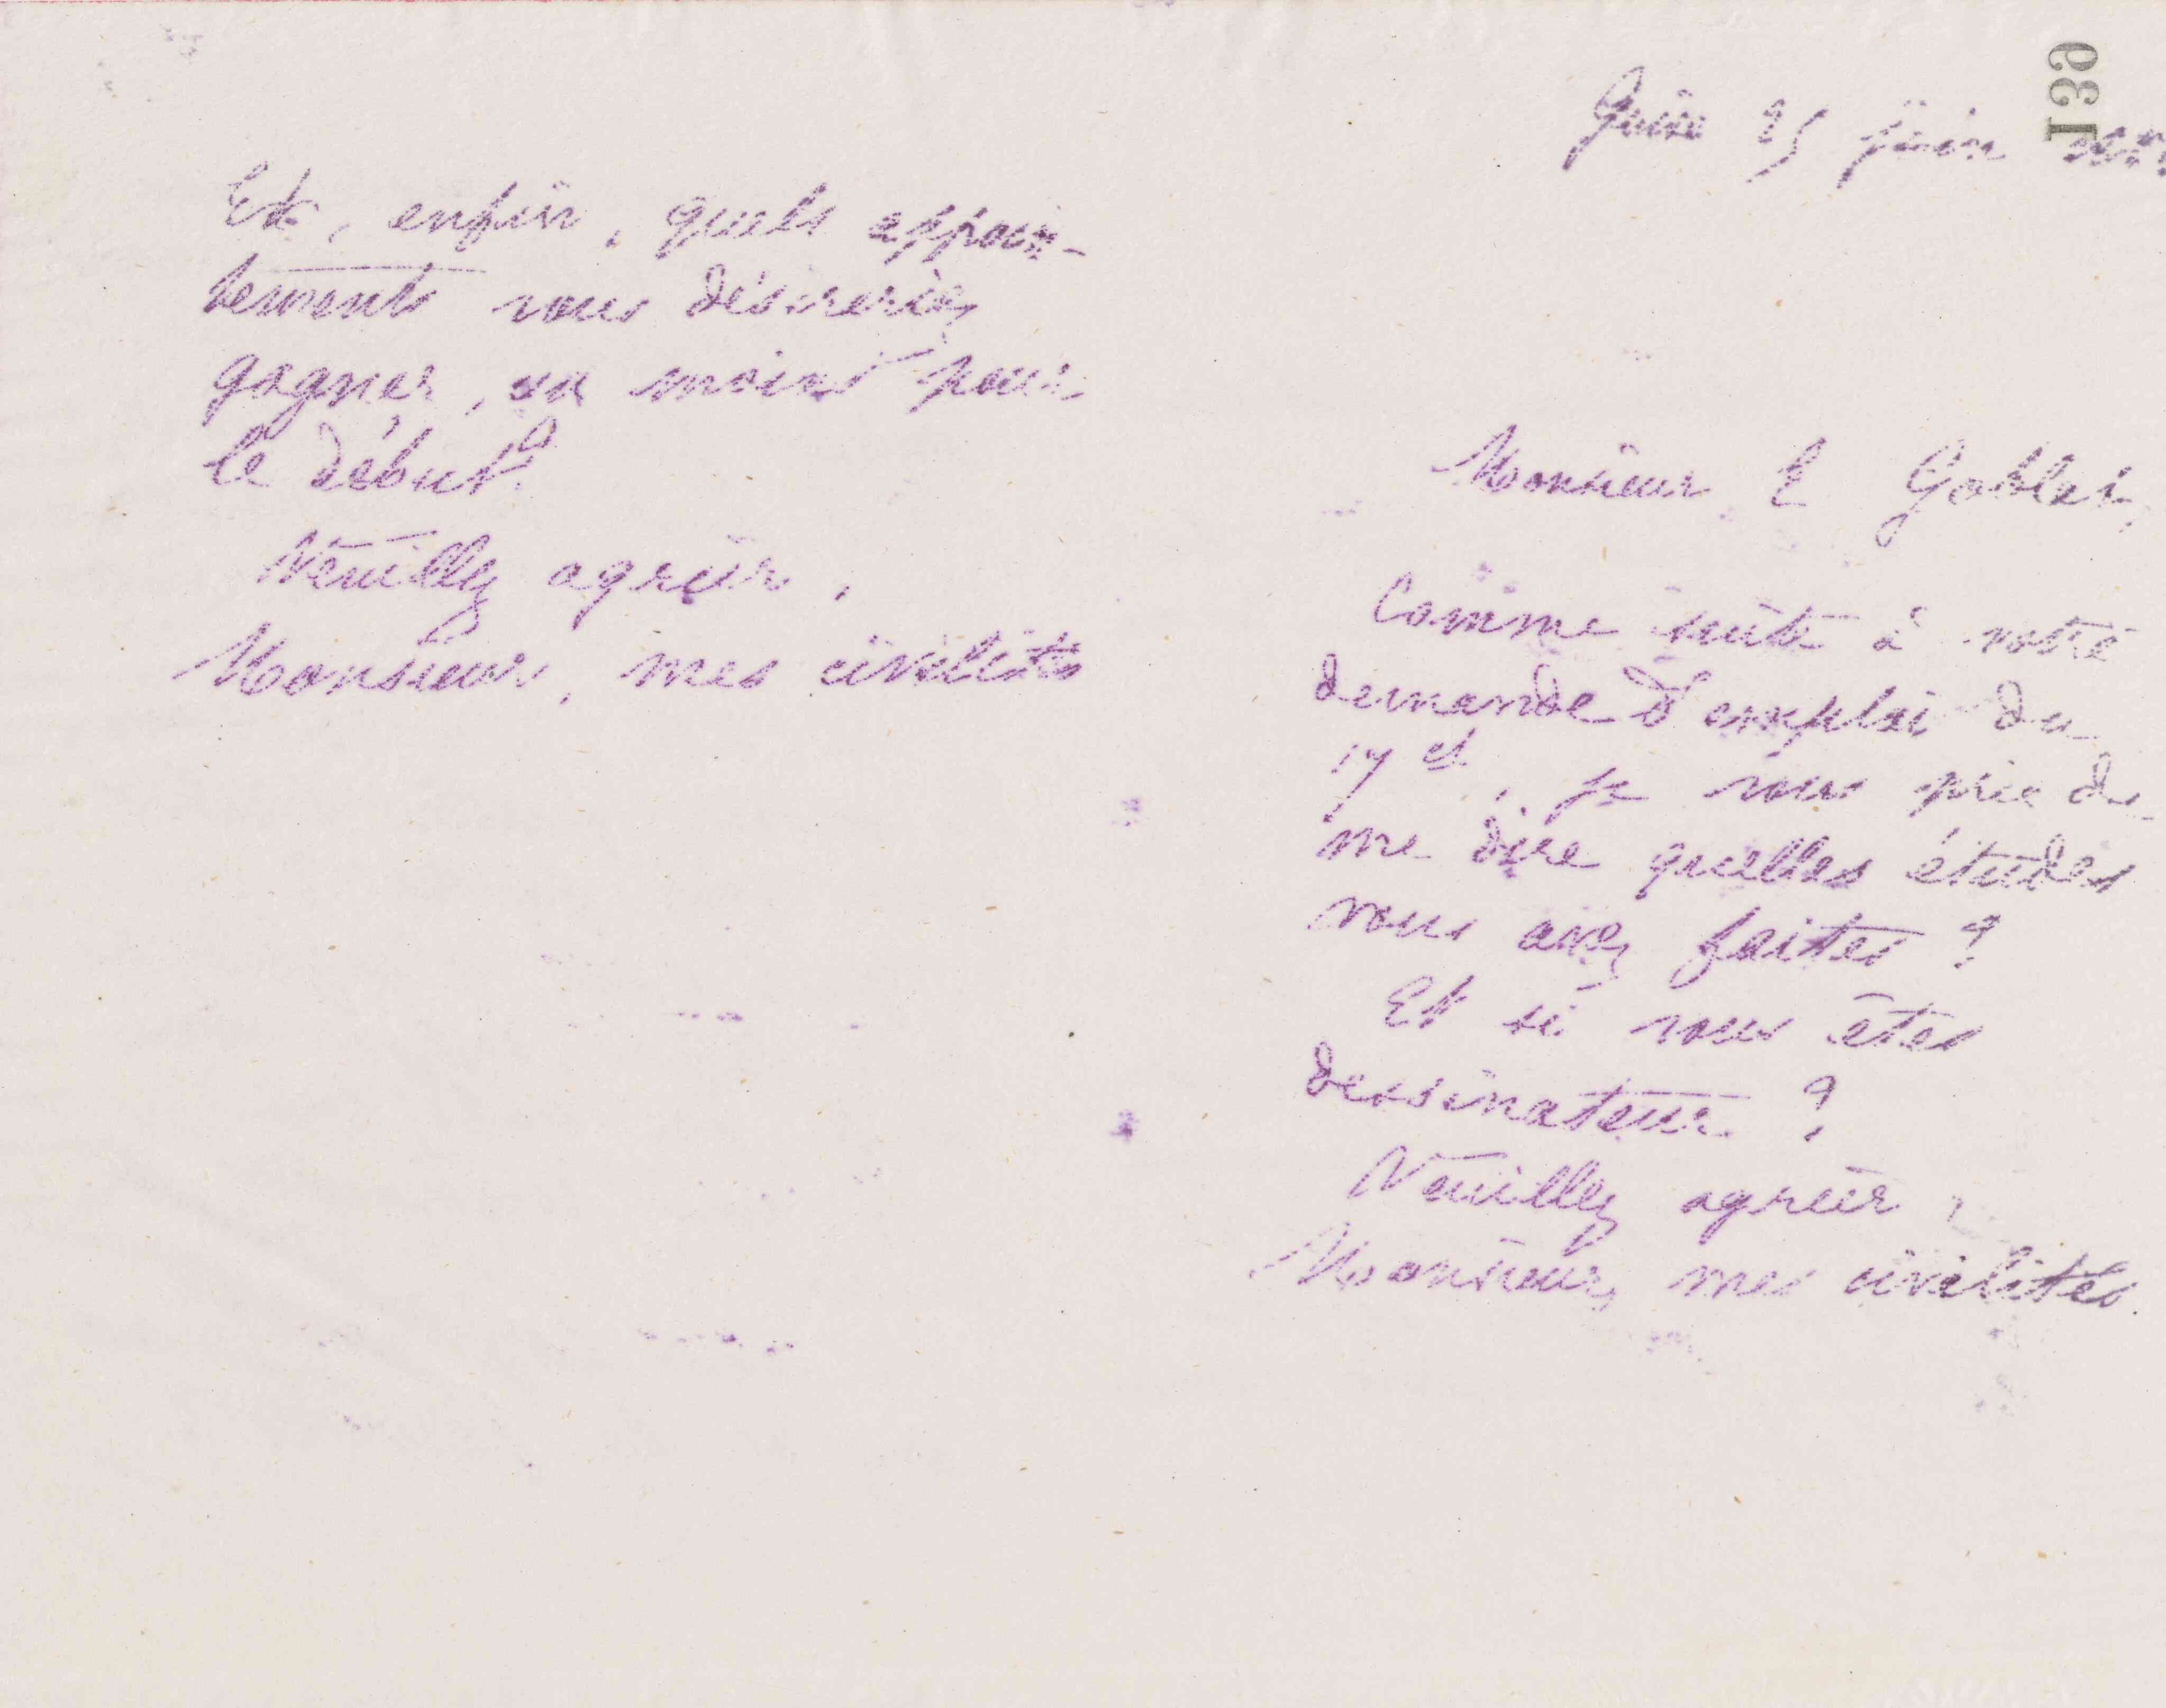 139
Guise 25 juin
Monsieur E Goblet,
Comme suite à votre
demande d'emploi du
17 ct, je vous prie de
me dire quelles études
vous avez faites ?
Et si vous êtes
dessinateur ?
Veuillez agréer,
Monsieur, mes civilités.
Et, enfin, quels appoin-
tements vous désireriez
gagner, au moins pour
le début ?
Veuillez agréer,
Monsieur, mes civilités